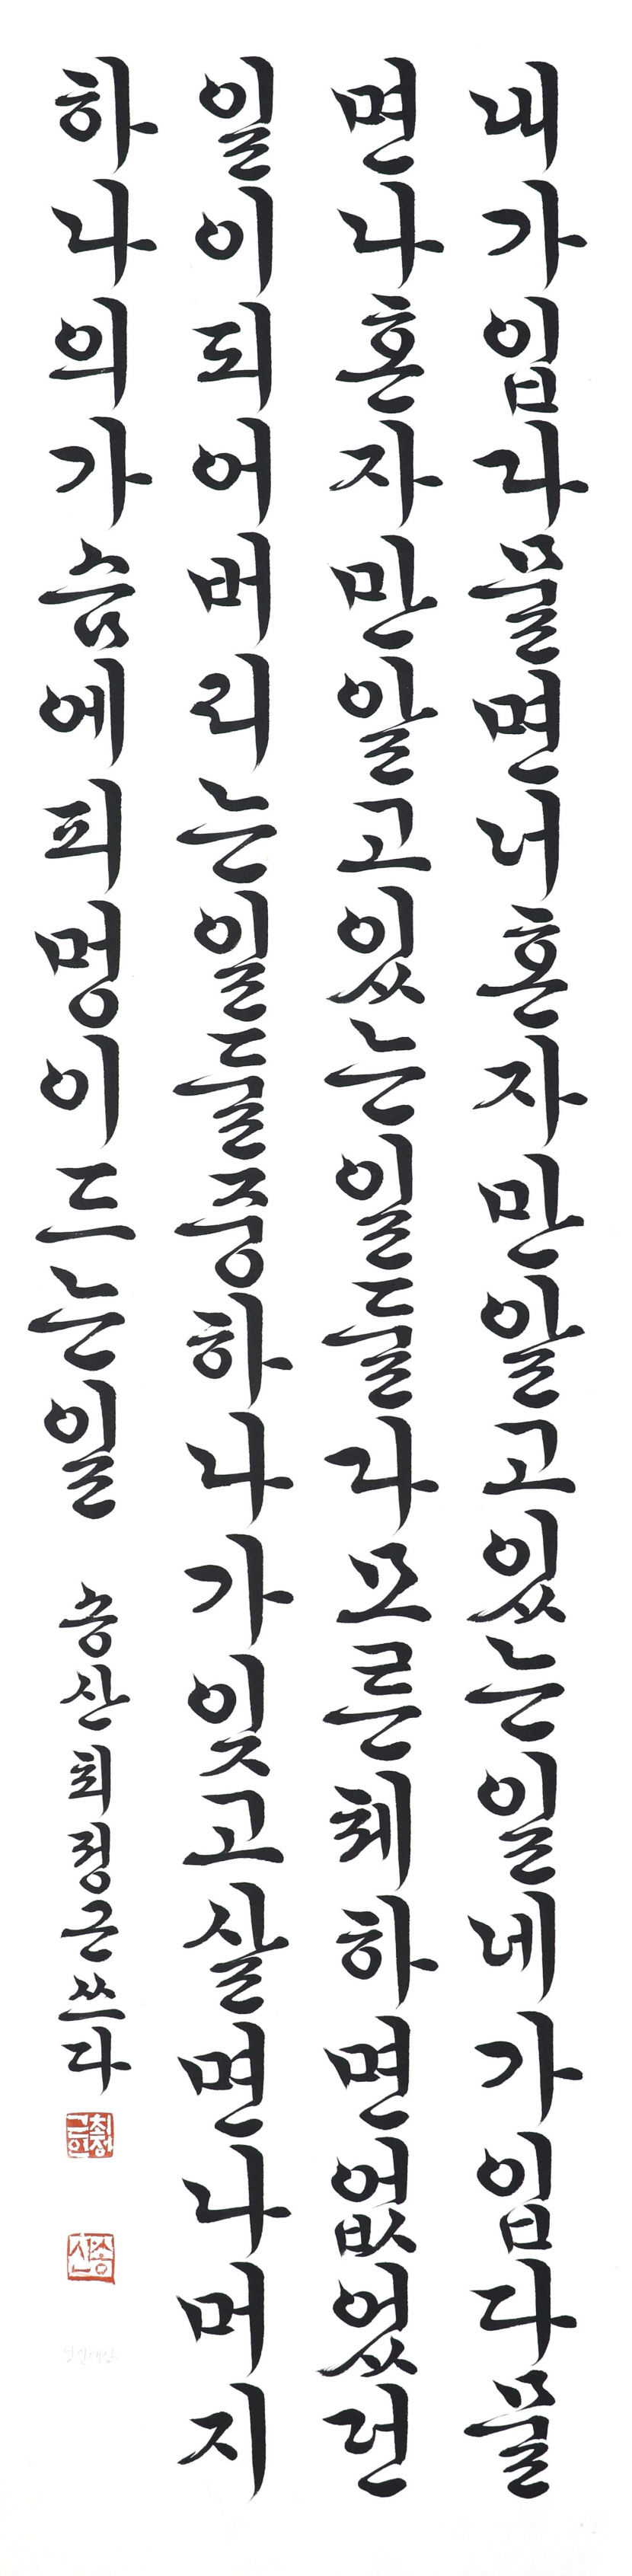 내가입다물면너혼자만알고있는일네가입다물
면나혼자만알고있는일들다모른체하면없었던
일이되어버리는일들중하나가잊고살면나머지
하나의가슴에피멍이드는일
송산최정근쓰다
최정근인
송산